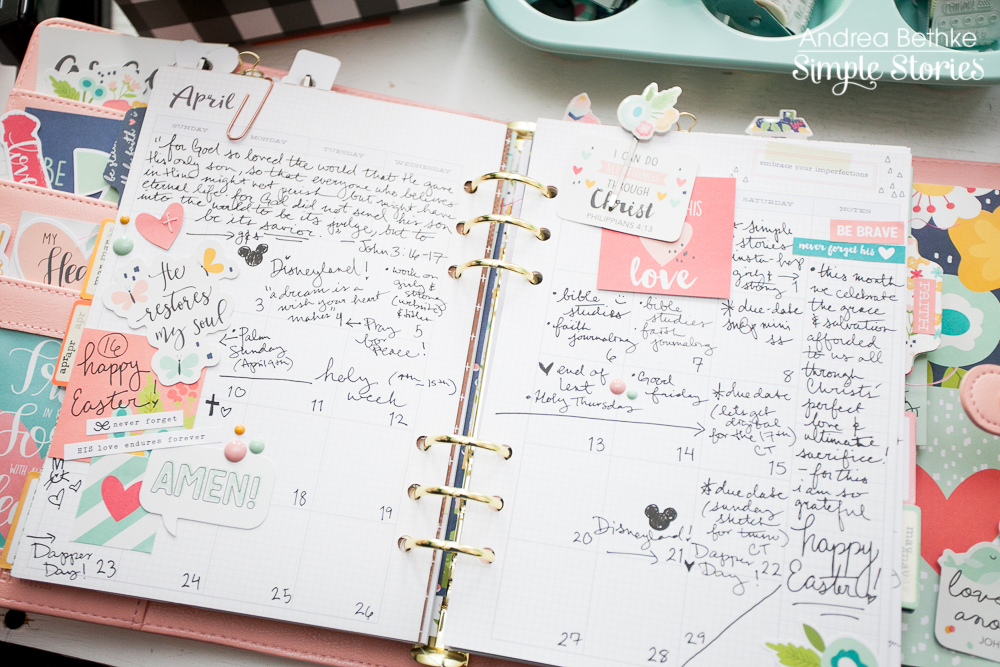 Andrea Bethke
Simple Stories
April
SUNDAY
MONDAY
TUESDAY
WEDNESDAY
"for God so loved the world that He gave
His only son, so that everyone who believes
in Him might not perish, but might have
eternal life; for God did not send his son
into the world to be its judge, but to
be its savior.
John 3:16-17
MY
He
restores
my soul
Disneyland!
"a dream is a
wish your heart
makes"
3
4
5
• work on
Pray
for
Peace!
Palm
Sunday
(April 9th)
holy
week
(9th-15th)
10
11
12
16
happy
Easter
never forget
HIS love endures forever
AMEN!
18
19
Dapper
Day!
23
24
25
26
aprapr
I CAN DO
THROUGH
Christ
PHILIPPIANS 4:13
THIS
love
embrace your imperfections
SATURDAY
NOTES
BE BRAVE
never forget his
* simple
stories
insta-hop
story 1
* due date
• bible
studies
• faith
journaling
6
• bible
studies
faith
journaling
7
8
end of
Lent
• Holy Thursday
• Good
Friday
13
14
* due date
(let's get
digital
for the 17th)
CT
15
* due date
(sunday
sketches
for
CT
Disneyland!
20
21
Dapper
Day!
22
27
28
29
• this month
we celebrate
the grace
& salvation
afforded
to us all
through
Christ's
perfect
love &
ultimate
sacrifice!
- for this
i am so
grateful
happy
Easter!
FAITH